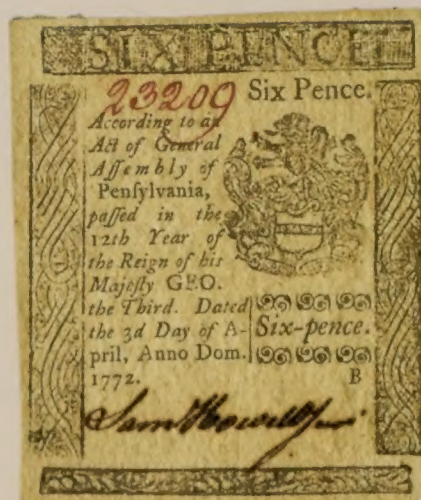 SIX PENCE
23209 Six Pence.
According to an
Act of General
Aſſembly of
Penſylvania,
paſſed in the
12th Year of
the Reign of his
Majeſty GEO.
the Third. Dated
the 3d Day of A-
pril, Anno Dom.
1772.
Six-pence.
B
Saml Howell Jun